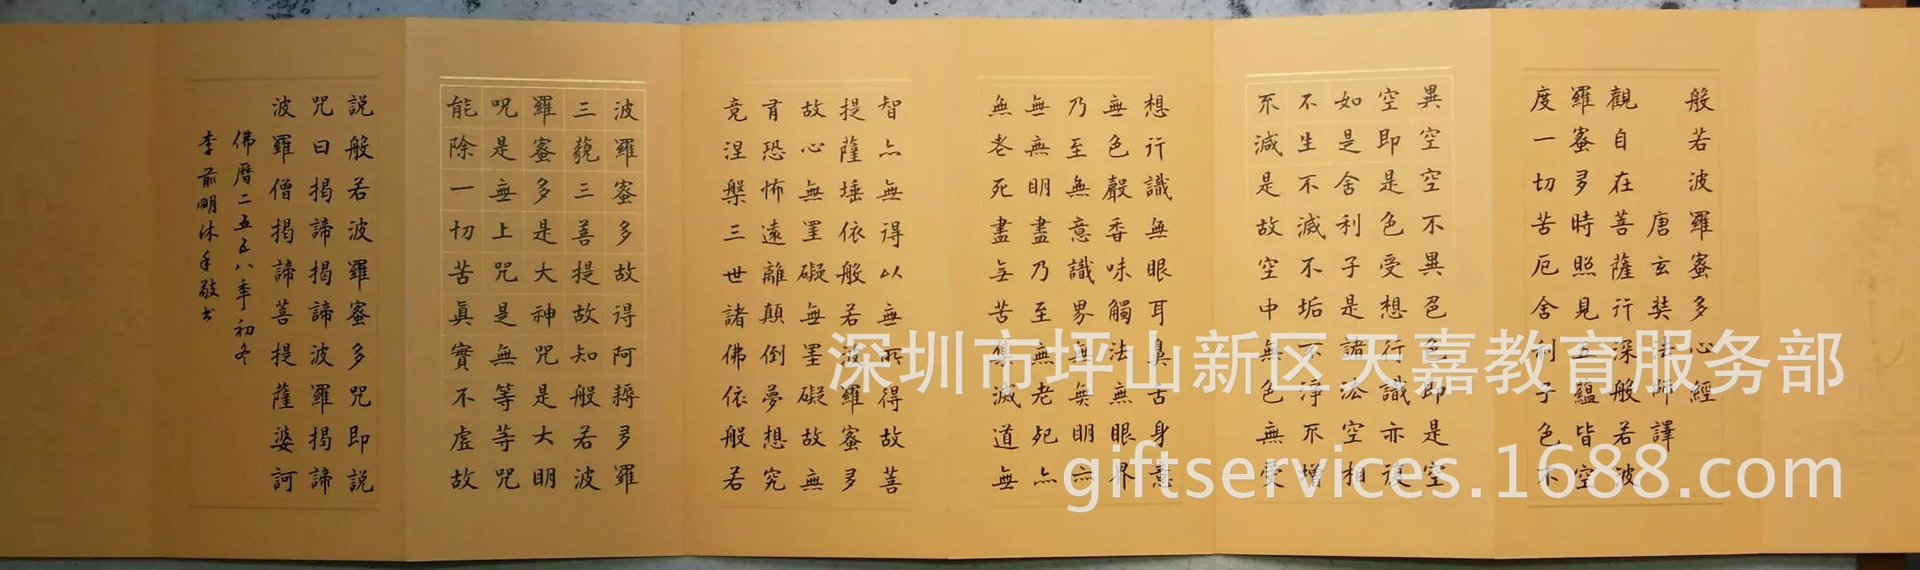 般若波羅蜜多心經
唐玄奘法師譯
觀自在菩薩行深般若波
羅蜜多時照見五蘊皆空
度一切苦厄舍利子色不
異空空不異色色即是空
空即是色受想行識亦復
如是舍利子是諸法空相
不生不滅不垢不淨不增
不減是故空中無色無受
想行識無眼耳鼻舌身意
無色聲香味觸法無眼界
乃至無意識界無無明亦
無無明盡乃至無老死亦
無老死盡無苦集滅道無
智亦無得以無所得故菩
提薩埵依般若波羅蜜多
故心無罣礙無罣礙故無
有恐怖遠離顛倒夢想究
竟涅槃三世諸佛依般若
波羅蜜多故得阿耨多羅
三藐三菩提故知般若波
羅蜜多是大神咒是大明
咒是無上咒是無等等咒
能除一切苦真實不虛故
說般若波羅蜜多咒即說
咒曰揭諦揭諦波羅揭諦
波羅僧揭諦菩提薩婆訶
佛曆二五五八年初冬
李前明沐手敬书
深圳市坪山新区天嘉教育服务部
giftservices.1688.com